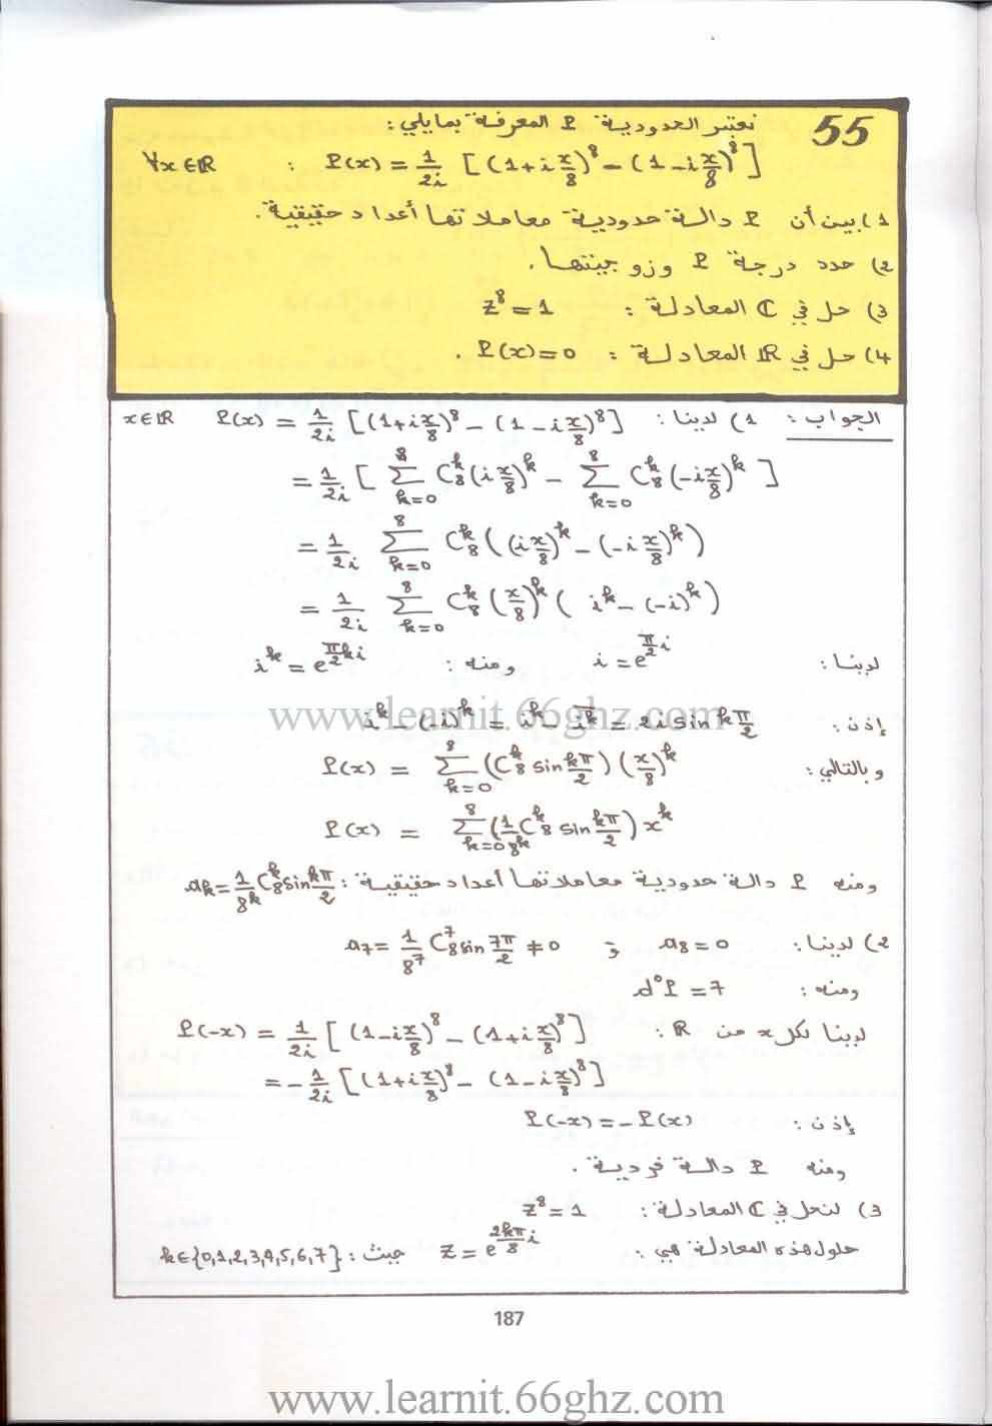 55 نعتبر الحدودية P المعرفة بمايلي :
∀x ∈ ℝ : P(x) = 1/2i [(1+i x/8)^8 − (1−i x/8)^8]
1) بين أن P دالة حدودية معاملاتها أعداد حقيقية.
2) حدد درجة P وزوجيتها.
3) حل في ℂ المعادلة : z^8 = 1
4) حل في ℝ المعادلة : P(x) = 0 .
الجواب : 1) لدينا : P(x) = 1/2i [(1+i x/8)^8 − (1−i x/8)^8] x ∈ ℝ
= 1/2i [ ∑_{k=0}^{8} C_8^k (i x/8)^k − ∑_{k=0}^{8} C_8^k (−i x/8)^k ]
= 1/2i ∑_{k=0}^{8} C_8^k ((i x/8)^k − (−i x/8)^k)
= 1/2i ∑_{k=0}^{8} C_8^k (x/8)^k ( i^k − (−i)^k )
لدينا : i = e^{π/2 i} ومنه : i^k = e^{πk/2 i}
إذن : i^k − (−i)^k = i^k − \overline{i^k} = 2i sin kπ/2
وبالتالي : P(x) = ∑_{k=0}^{8} (C_8^k sin kπ/2) (x/8)^k
P(x) = ∑_{k=0}^{8} (1/8^k C_8^k sin kπ/2) x^k
ومنه P دالة حدودية معاملاتها أعداد حقيقية : a_k = 1/8^k C_8^k sin kπ/2
2) لدينا : a_8 = 0 و a_7 = 1/8^7 C_8^7 sin 7π/2 ≠ 0
ومنه : d°P = 7
لدينا لكل x من ℝ : P(−x) = 1/2i [(1−i x/8)^8 − (1+i x/8)^8]
= − 1/2i [(1+i x/8)^8 − (1−i x/8)^8]
إذن : P(−x) = −P(x)
ومنه P دالة فردية .
3) لنحل في ℂ المعادلة : z^8 = 1
حلول هذه المعادلة هي : z = e^{2kπ/8 i} حيث : k ∈ {0,1,2,3,4,5,6,7}
187
www.learnit.66ghz.com
www.learnit.66ghz.com